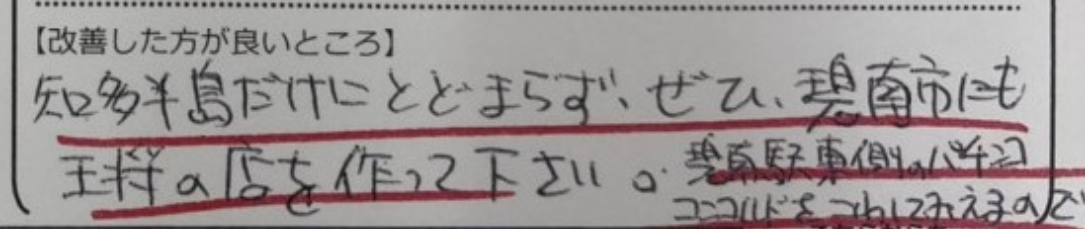 【改善した方が良いところ】
知多半島だけにとどまらず、ぜひ、碧南市にも
王将の店を作って下さい。
碧南駅東側のパチンコ
コンコルドをこわして